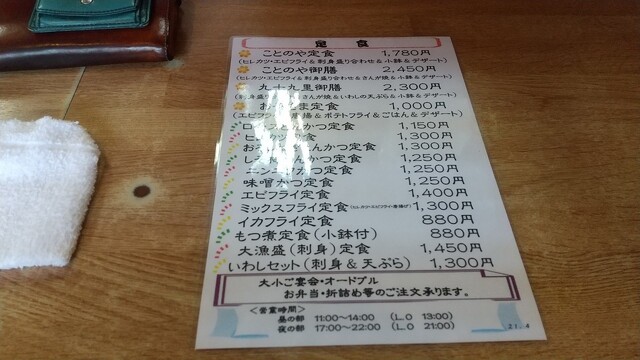 定 食
ことのや定食 1,780円
(ヒレカツ・エビフライ&刺身盛り合わせ&小鉢&デザート)
ことのや御膳 2,450円
(ヒレカツ・エビフライ&刺身盛り合わせ&さんが焼&小鉢&デザート)
九十九里御膳 2,300円
さんが焼&いわしの天ぷら&小鉢&デザート)
ま定食 1,000円
(エビフライ &ポテトフライ&ごはん&デザート)
かつ定食 1,150円
定食 1,300円
かつ定食 1,300円
かつ定食 1,250円
かつ定食 1,250円
味噌かつ定食 1,250円
エビフライ定食 1,400円
ミックスフライ定食 1,300円
イカフライ定食 880円
もつ煮定食(小鉢付) 880円
大漁盛(刺身)定食 1,450円
いわしセット(刺身&天ぷら) 1,300円
大小ご宴会・オードブル
お弁当・折詰め等のご注文承ります。
<営業時間>
昼の部 11:00〜14:00 (L.O 13:00)
夜の部 17:00〜22:00 (L.O 21:00)
21.4